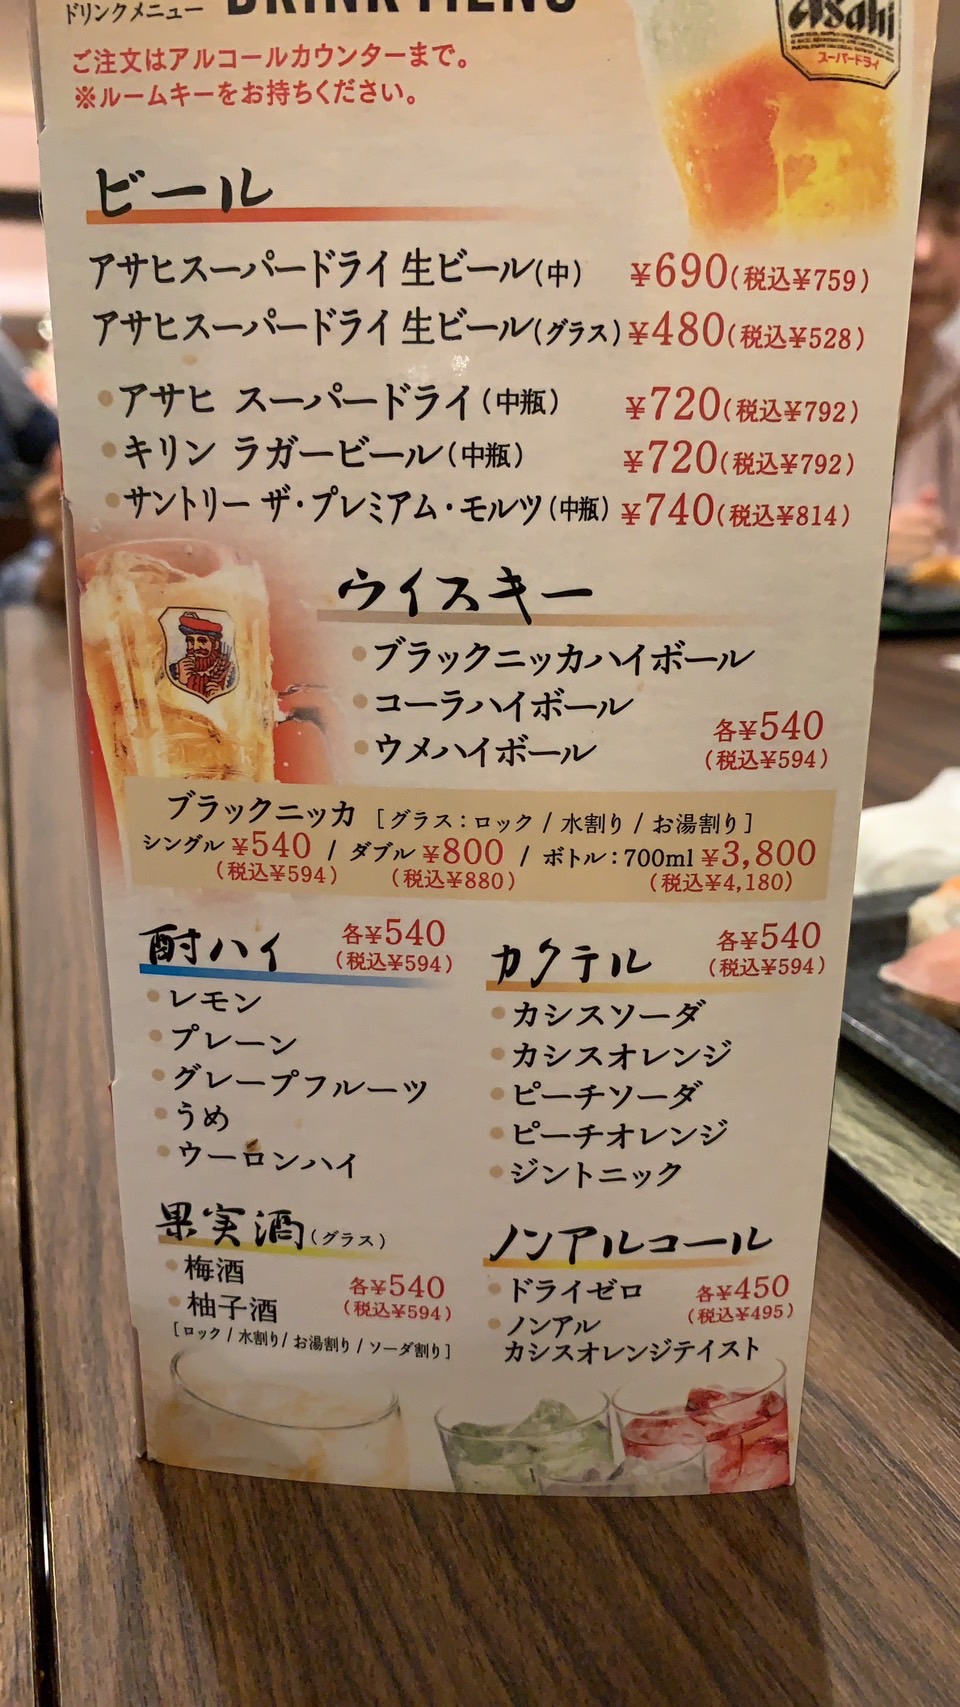 ドリンクメニュー DRINK MENU
Asahi
スーパードライ
ご注文はアルコールカウンターまで。
※ルームキーをお持ちください。
ビール
アサヒスーパードライ 生ビール(中) ¥690(税込¥759)
アサヒスーパードライ 生ビール(グラス) ¥480(税込¥528)
・アサヒ スーパードライ(中瓶) ¥720(税込¥792)
・キリン ラガービール(中瓶) ¥720(税込¥792)
・サントリー ザ・プレミアム・モルツ(中瓶) ¥740(税込¥814)
ウイスキー
・ブラックニッカハイボール
・コーラハイボール
・ウメハイボール
各¥540
(税込¥594)
ブラックニッカ [グラス：ロック / 水割り / お湯割り]
シングル ¥540 / ダブル ¥800 / ボトル：700ml ¥3,800
(税込¥594) (税込¥880) (税込¥4,180)
酎ハイ 各¥540
(税込¥594)
・レモン
・プレーン
・グレープフルーツ
・うめ
・ウーロンハイ
カクテル 各¥540
(税込¥594)
・カシスソーダ
・カシスオレンジ
・ピーチソーダ
・ピーチオレンジ
・ジントニック
果実酒(グラス)
・梅酒
・柚子酒
各¥540
(税込¥594)
[ロック / 水割り / お湯割り / ソーダ割り]
ノンアルコール
・ドライゼロ
・ノンアル
カシスオレンジテイスト
各¥450
(税込¥495)